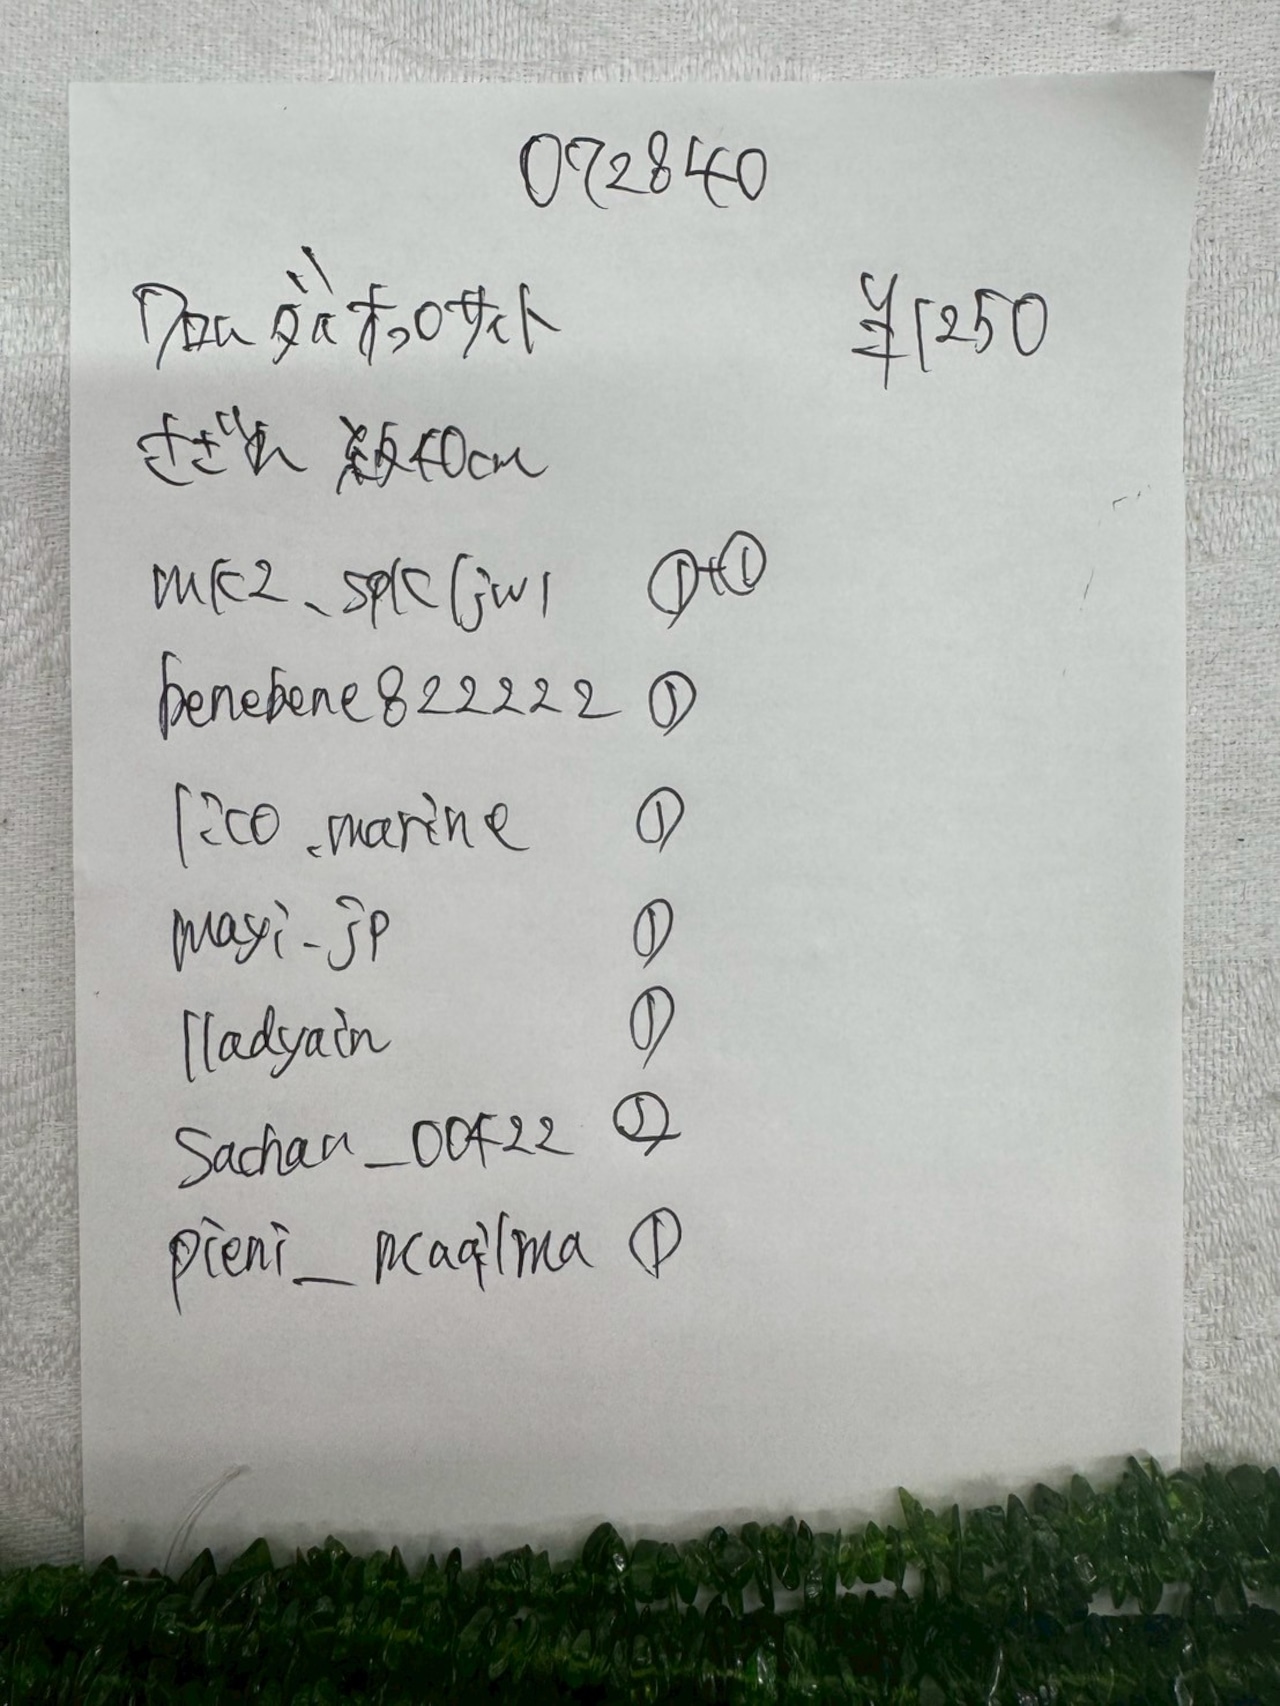 072840
クロムダイオプサイト ¥1250
さざれ 約40cm
mk2_spkljw1 ①+①
benebene822222 ①
rico.marine ①
mayi_jp ①
lladyain ①
Sachan_00422
pieni_maailma ①